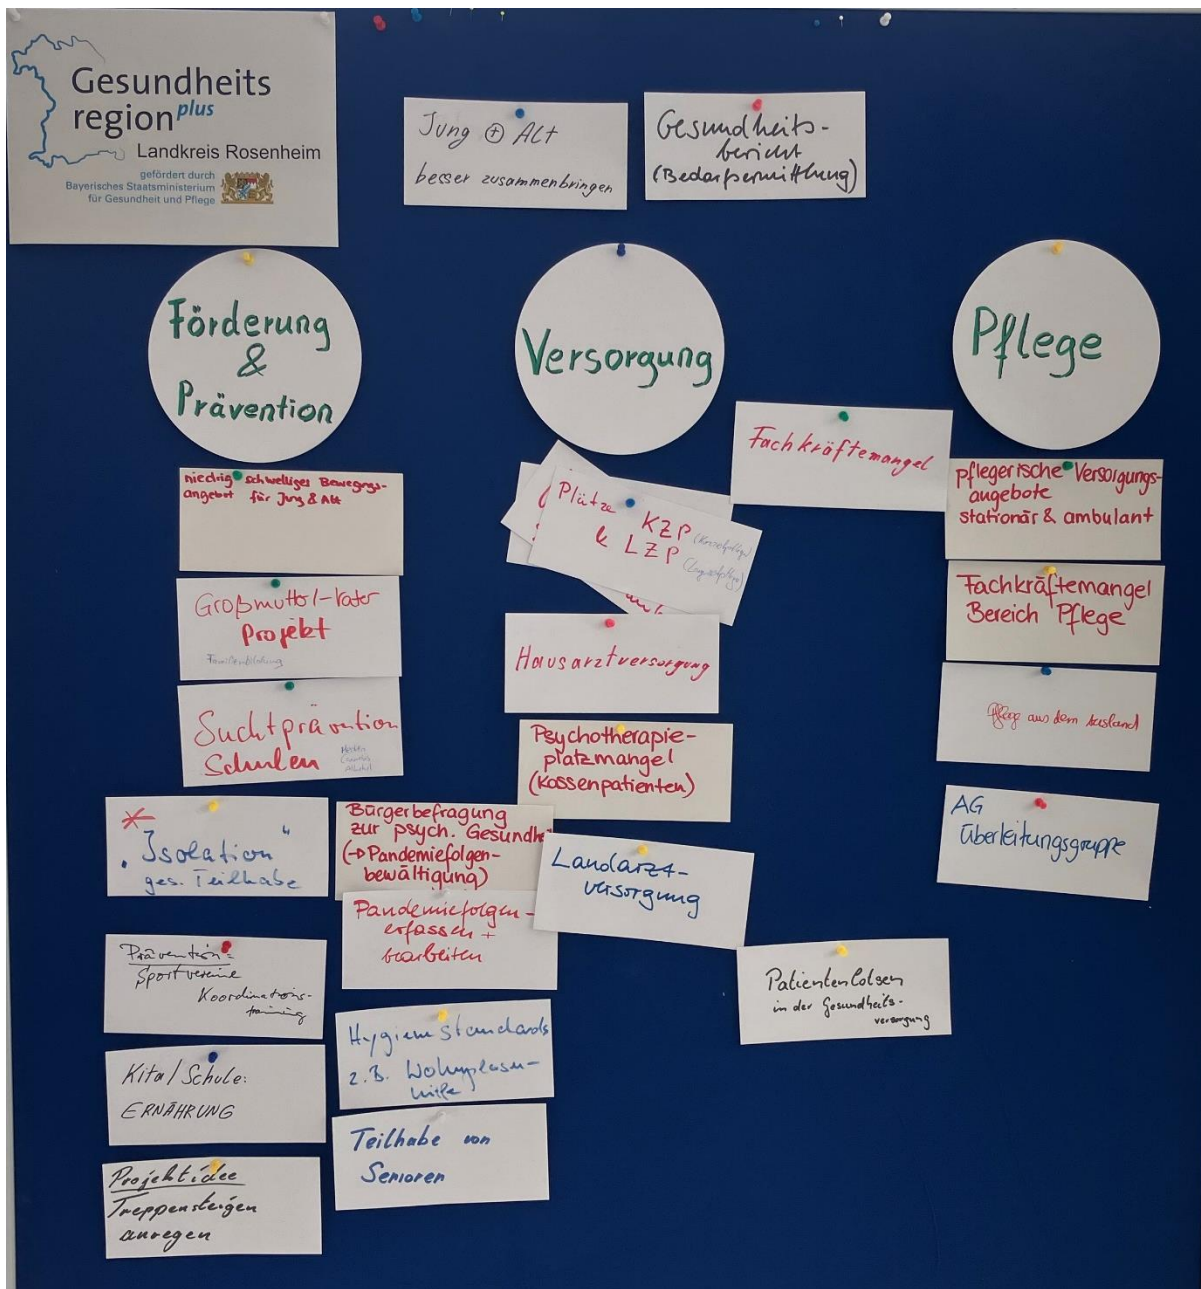 Gesundheits
region plus
Landkreis Rosenheim
gefördert durch
Bayerisches Staatsministerium
für Gesundheit und Pflege
Jung + Alt
besser zusammenbringen
Gesundheits-
bericht
(Bedarfsermittlung)
Förderung
&
Prävention
niedrigschwelliges Bewegungs-
angebot für Jung & Alt
Großmutter/-vater
Projekt
Familienbildung
Suchtprävention
Schulen
Medien
Alkohol
"Isolation"
ges. Teilhabe
Prävention:
Sportvereine
Koordinations-
training
Kita/Schule:
ERNÄHRUNG
Projektidee
Treppensteigen
anregen
Bürgerbefragung
zur psych. Gesundhe
(→Pandemiefolgen-
bewältigung)
Pandemiefolgen-
erfassen +
bearbeiten
Hygienestandards
z.B. Wohn
Teilhabe von
Senioren
Versorgung
Plätze KZP (Kurzzeitpflege)
& LZP (Langzeitpflege)
Hausarztversorgung
Psychotherapie-
platzmangel
(Kassenpatienten)
Landarzt-
versorgung
Fachkräftemangel
Patientenlotsen
in der Gesundheits-
versorgung
Pflege
pflegerische Versorgungs-
angebote
stationär & ambulant
Fachkräftemangel
Bereich Pflege
Pflege aus dem Ausland
AG
Überleitungsgruppe